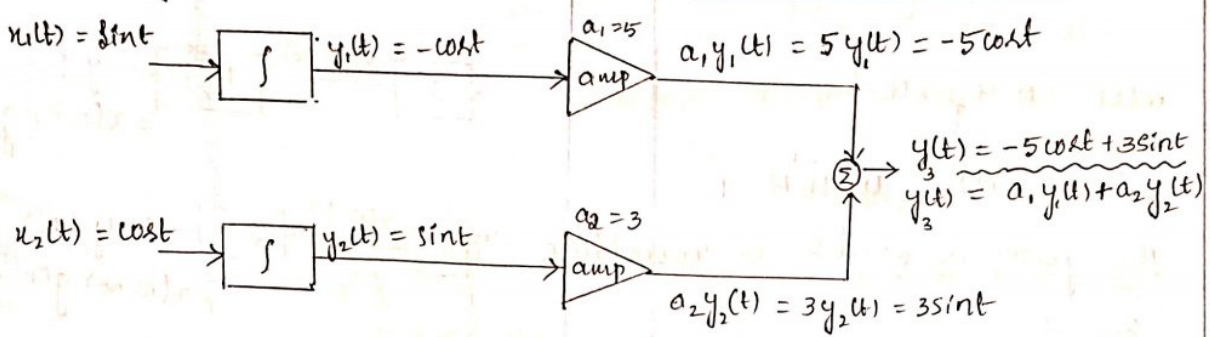 x₁(t) = sint
∫
y₁(t) = -cost
a₁=5
amp
a₁y₁(t) = 5y₁(t) = -5cost
Σ
y₃(t) = -5cost+3sint
y₃(t) = a₁y₁(t)+a₂y₂(t)
x₂(t) = cost
∫
y₂(t) = sint
a₂=3
amp
a₂y₂(t) = 3y₂(t) = 3sint